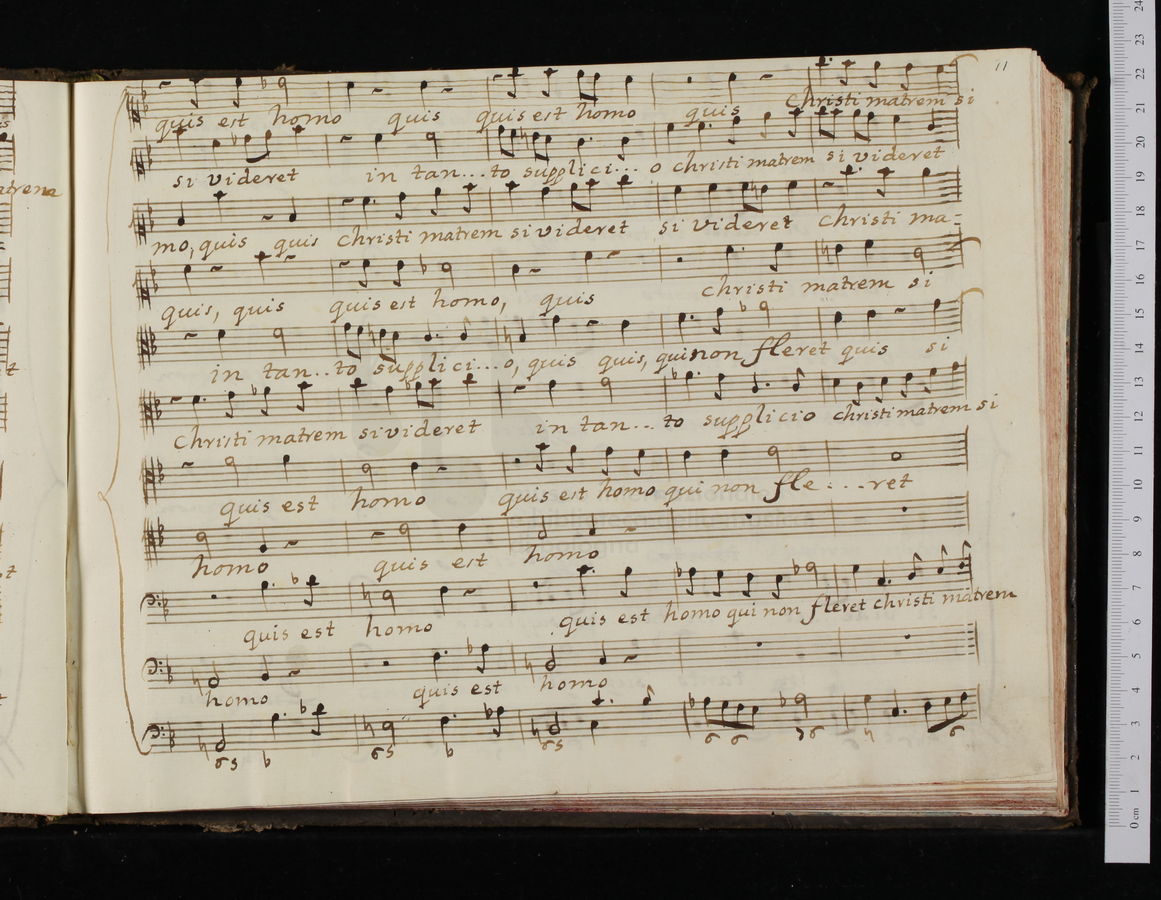 11
quis est homo quis quis est homo quis christi matrem si
si videret in tan...to supplici...o christi matrem si videret
mo, quis quis christi matrem si videret si videret christi ma-
quis, quis quis est homo, quis christi matrem si
in tan..to supplici...o, quis quis, qui non fleret quis si
christi matrem si videret in tan...to supplicio christi matrem si
quis est homo quis est homo qui non fle...ret
homo quis est homo
quis est homo quis est homo qui non fleret christi matrem
homo quis est homo